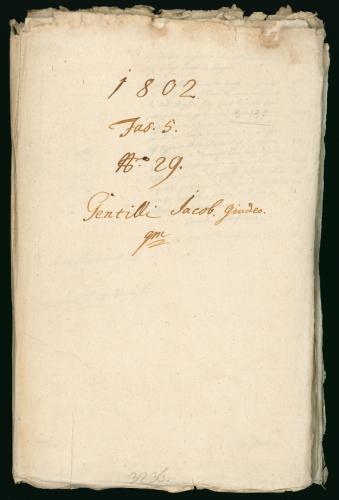 1802
Fas. 5.
N.º 29.
Gentilli Jacob. Giudeo.
qm
3236.